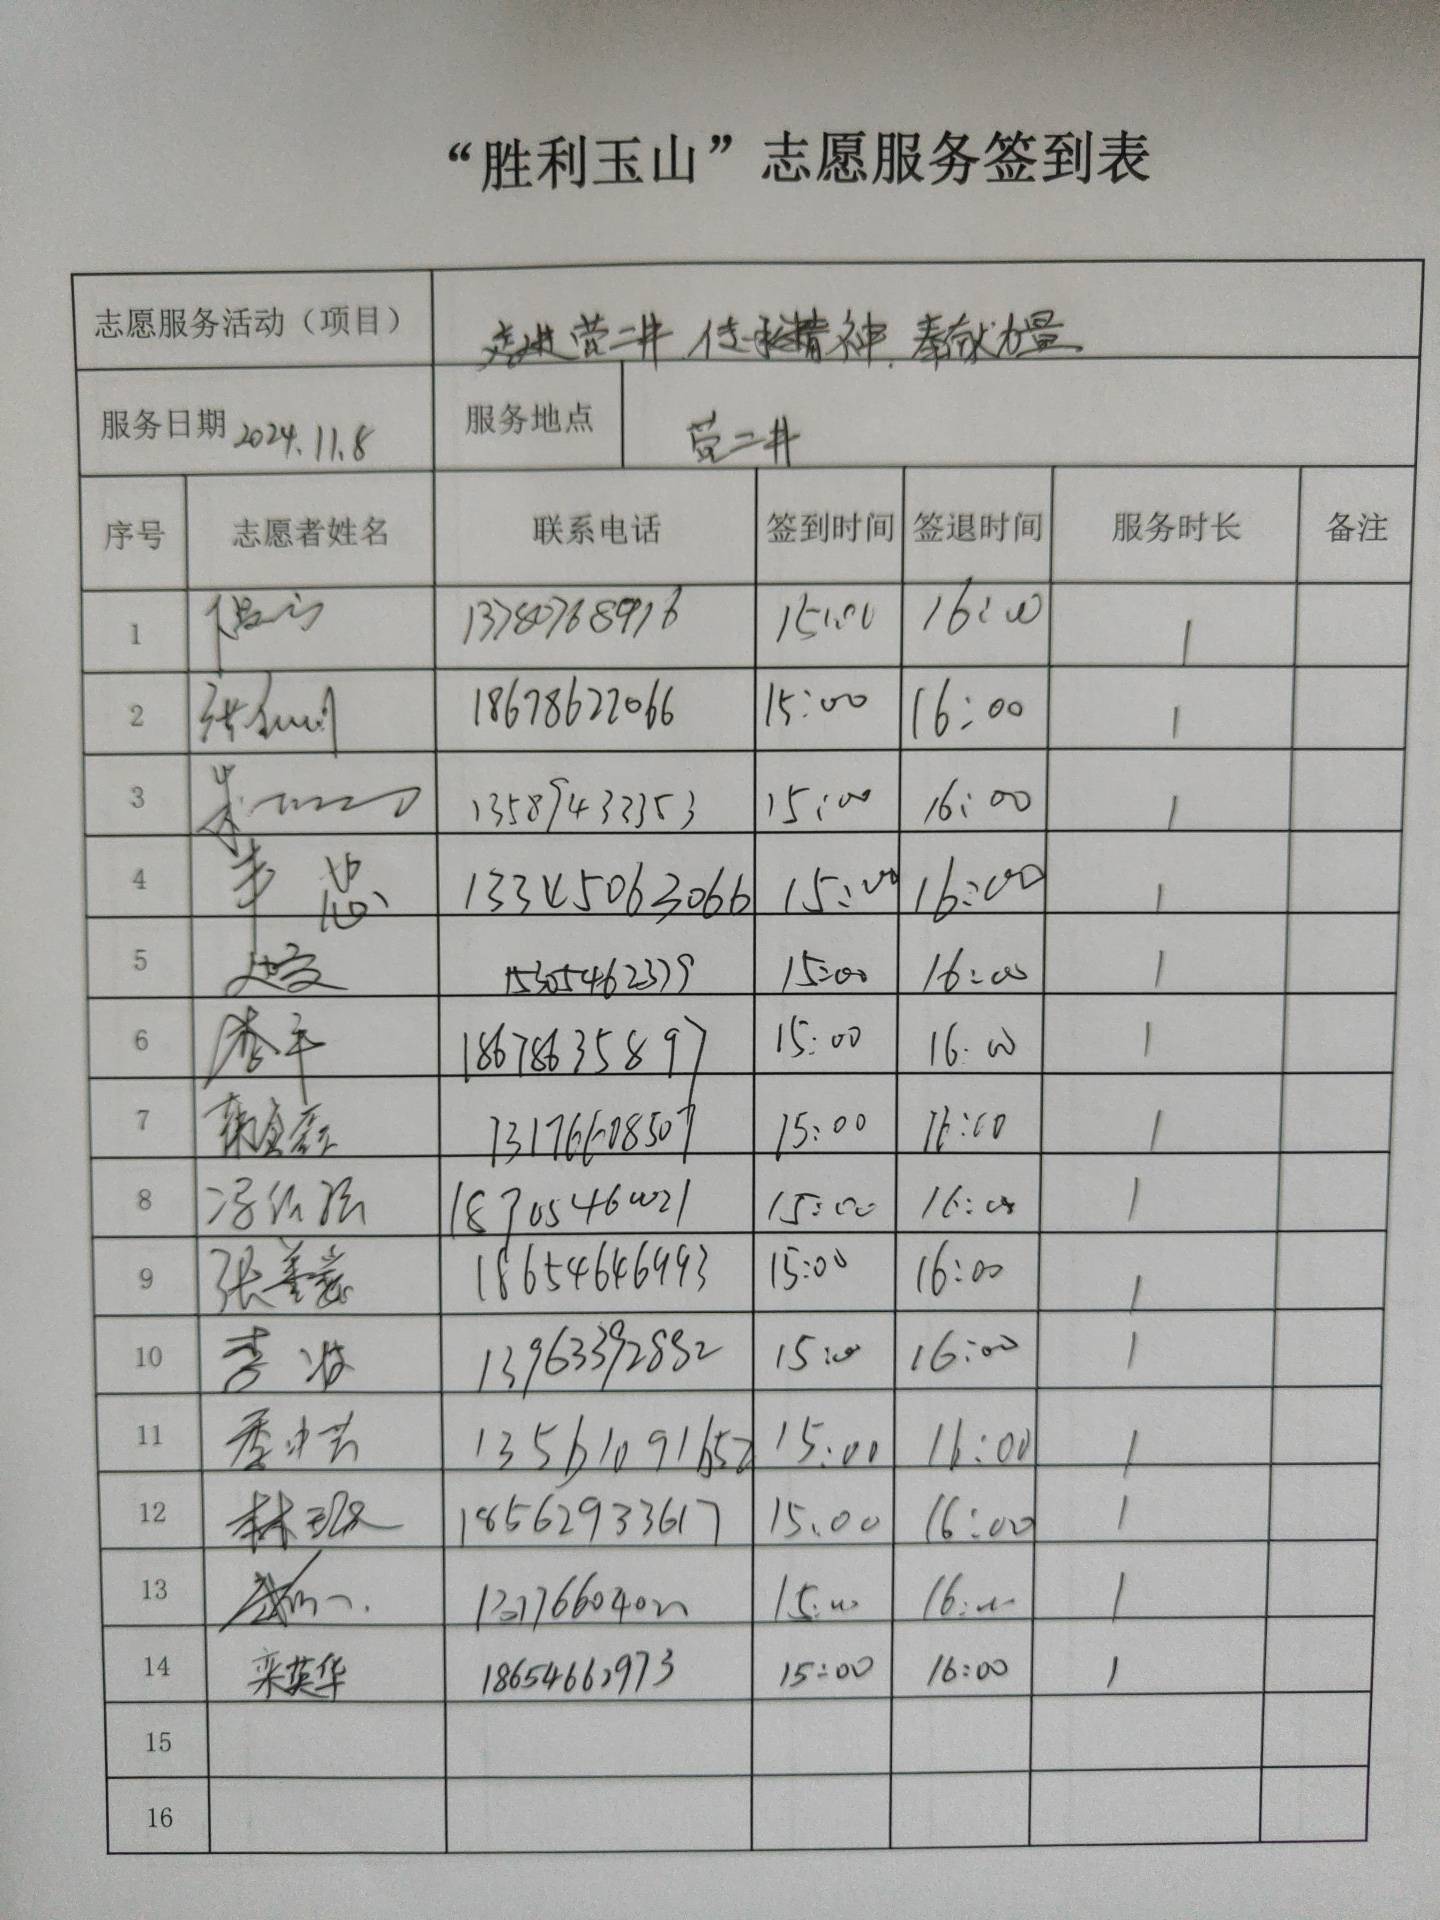 “胜利玉山”志愿服务签到表
志愿服务活动（项目） 走进营二井 传承精神 奉献力量
服务日期 2024.11.8 服务地点 营二井
序号 志愿者姓名 联系电话 签到时间 签退时间 服务时长 备注
1 13780768976 15:00 16:00 1
2 18678622066 15:00 16:00 1
3 13589432353 15:00 16:00 1
4 13345063066 15:00 16:00 1
5 15305462379 15:00 16:00 1
6 李平 18678635897 15:00 16:00 1
7 13176608507 15:00 16:00 1
8 15:00 16:00 1
9 张善 18654646993 15:00 16:00 1
10 李波 13963392882 15:00 16:00 1
11 13561091652 15:00 16:00 1
12 林 18562933617 15:00 16:00 1
13 15:00 16:00 1
14 栾英华 18654662973 15:00 16:00 1
15
16